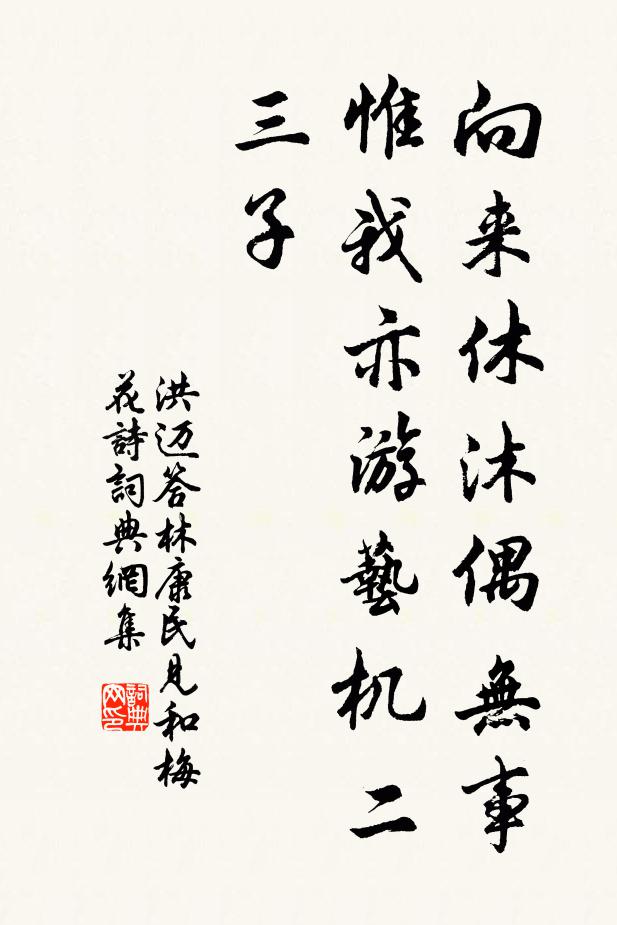 向来休沐偶無事
惟我亦游藝机二
三子
洪迈答林康民見和梅
花詩詞典網集
詞典网印